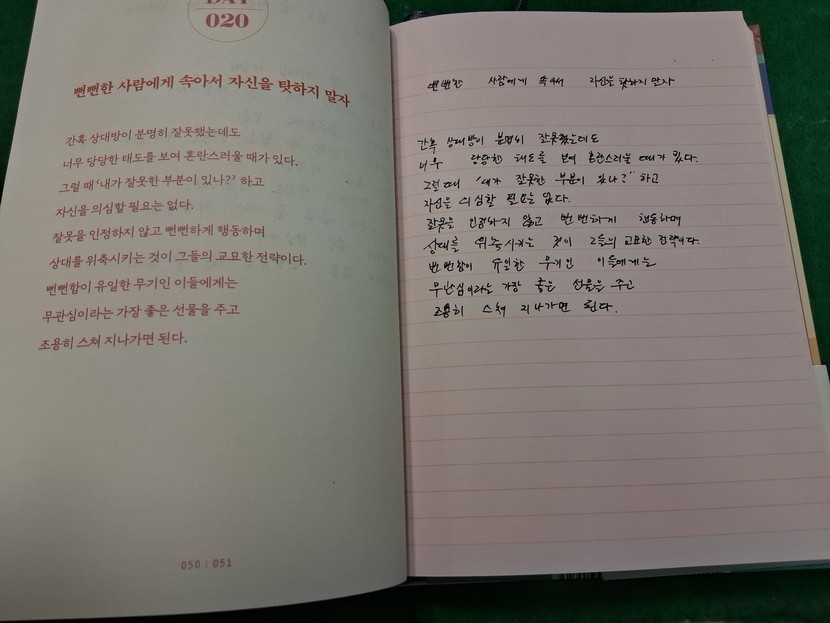 DAY
020
뻔뻔한 사람에게 속아서 자신을 탓하지 말자
간혹 상대방이 분명히 잘못했는데도
너무 당당한 태도를 보여 혼란스러울 때가 있다.
그럴 때 '내가 잘못한 부분이 있나?' 하고
자신을 의심할 필요는 없다.
잘못을 인정하지 않고 뻔뻔하게 행동하며
상대를 위축시키는 것이 그들의 교묘한 전략이다.
뻔뻔함이 유일한 무기인 이들에게는
무관심이라는 가장 좋은 선물을 주고
조용히 스쳐 지나가면 된다.
050 | 051
뻔뻔한 사람에게 속아서 자신을 탓하지 말자
간혹 상대방이 분명히 잘못했는데도
너무 당당한 태도를 보여 혼란스러울 때가 있다.
그럴 때 '내가 잘못한 부분이 있나?' 하고
자신을 의심할 필요는 없다.
잘못을 인정하지 않고 뻔뻔하게 행동하며
상대를 위축시키는 것이 그들의 교묘한 전략이다.
뻔뻔함이 유일한 무기인 이들에게는
무관심이라는 가장 좋은 선물을 주고
조용히 스쳐 지나가면 된다.